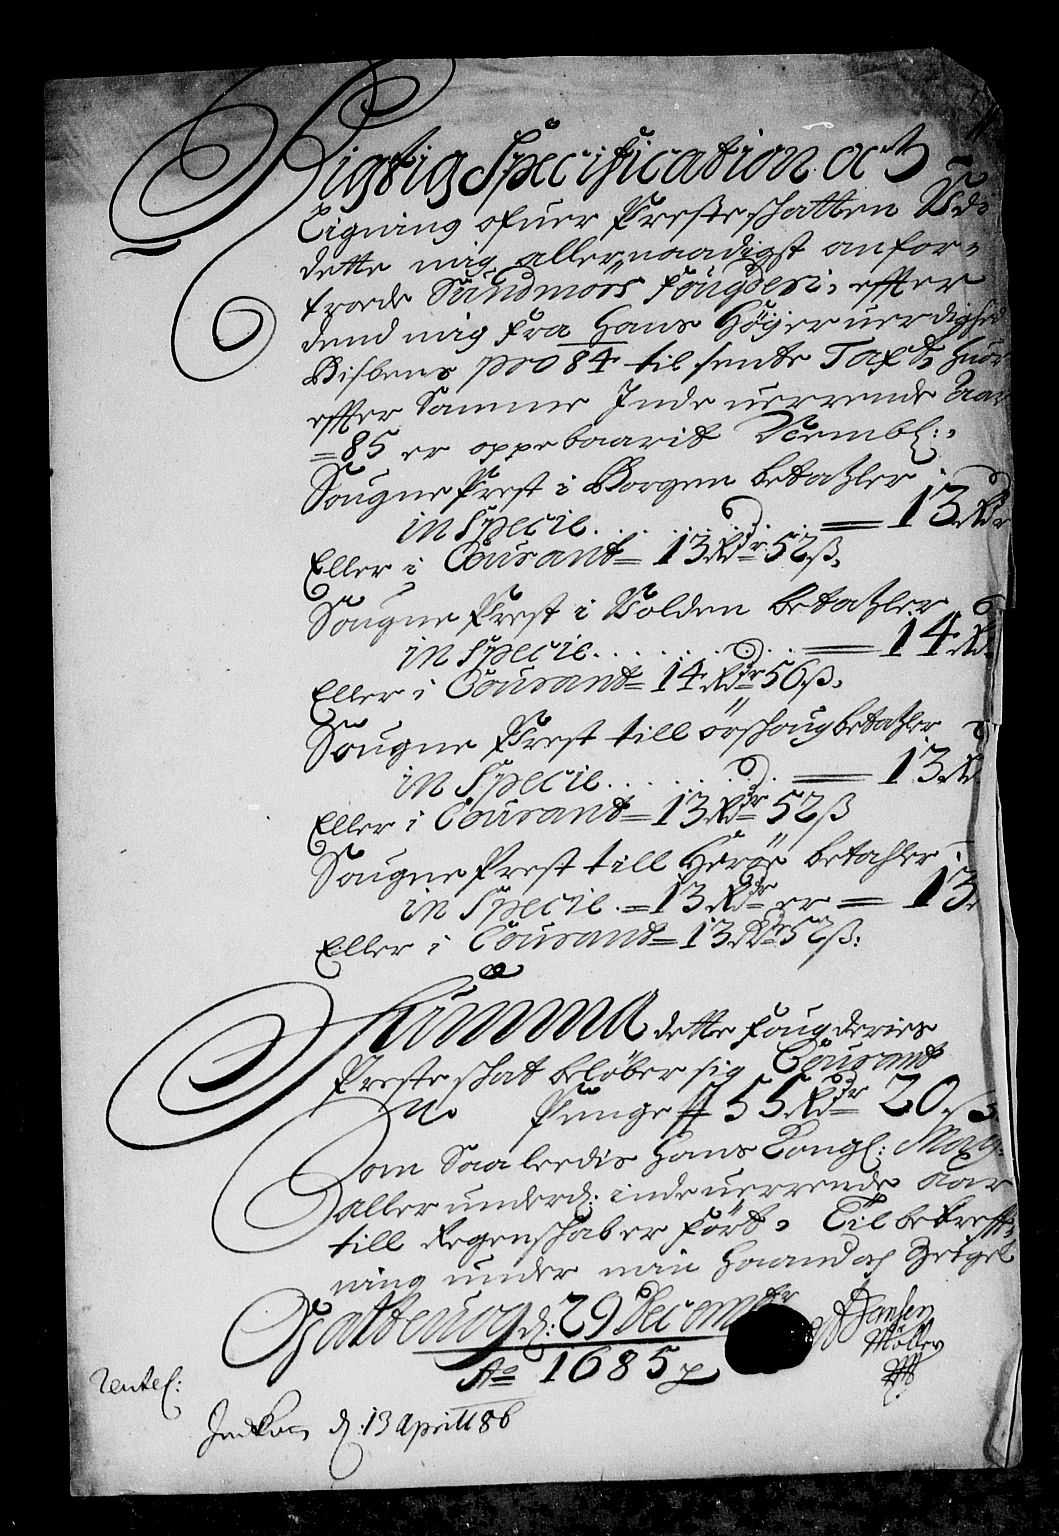 Rigtig Specification och
Ligning ofuer Presteskatten Udi
dette mig allernaadigst anfor-
troede Sundmørs fougderi, effter
dend mig fra Hans Høyerverdighed
Bispens pro 84 til sente Taxt, huor
effter Samme Inde uerrende Aar
=85 er oppebaarit Nembl:
Sougne Prest i Borgen betahler
in Specie . . . . . . = 13 Rdr
Eller i Courant = 13 Rdr 52 ß.
Sougne Prest i Volden betahler
in Specie . . . . . . = 14 Rd
Eller i Courant = 14 Rdr 56 ß.
Sougne Prest till örschoug betahler
in Specie . . . . . . = 13 R
Eller i Courant = 13 Rdr 52 ß
Sougne Prest till Herøe betahler
in Specie . = 13 Rdr er = 13
Eller i Courant = 13 Rdr 52 ß.
Summa dette fougderies
Presteskat beløber sig Courant
Penge # 55 Rdr 20 ß
Som Saaleedis Hans Kongl: May:
allerunderd: inde uerrende aar
till Regenskab er fört, Til bekreff-
ning under min Haand och Zeigel
d: 29 Decembr
Ao 1685
Hansen
Møller
Rentec:
Indkom d: 13 Aprill 86